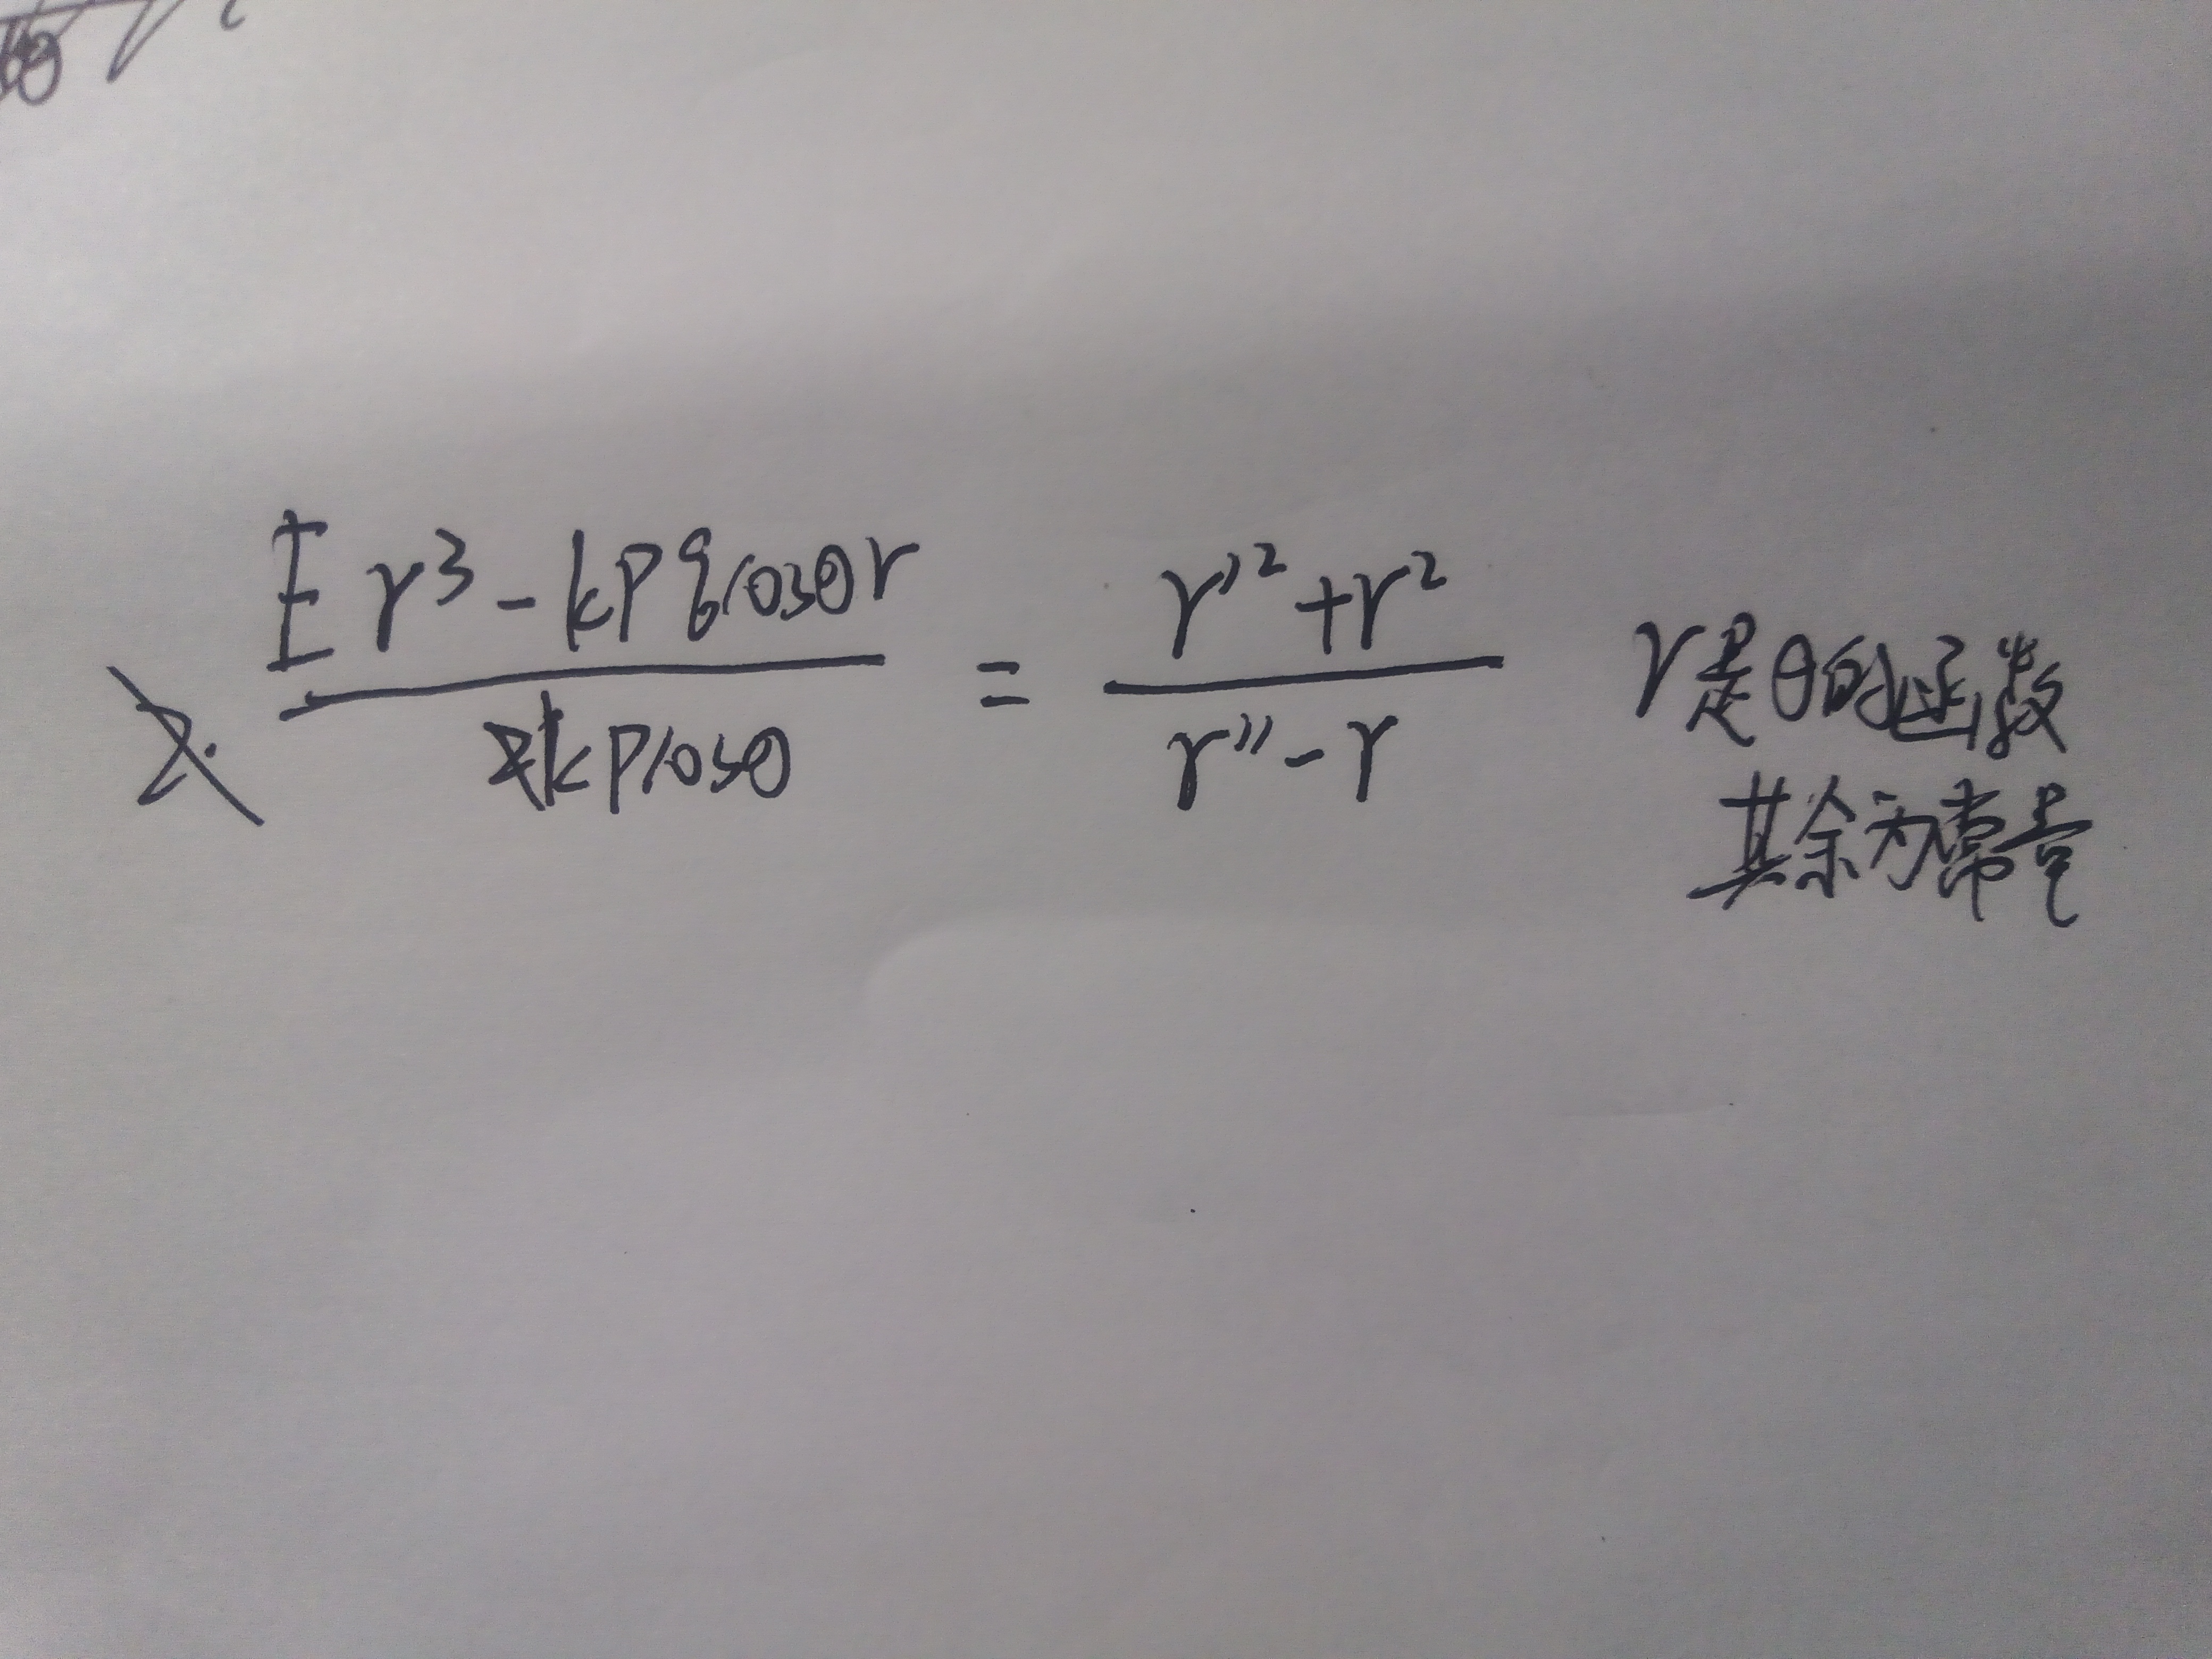 Er³-kpqcosθr / kpcosθ = r'²+r² / r''-r r是θ的函数
其余为常量